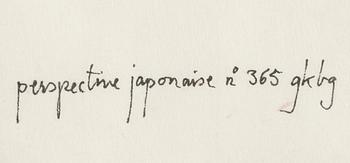 perspective japonaise n° 365 gkbg